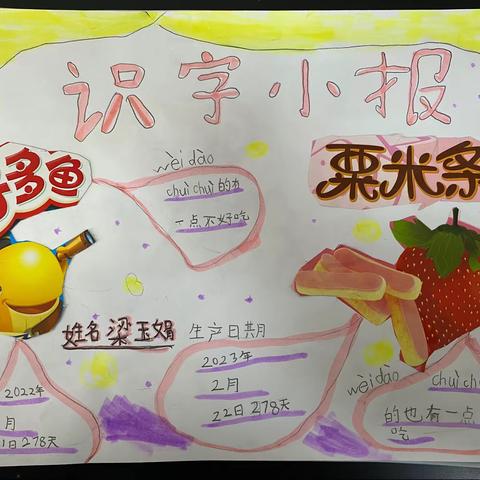 识字小报
好多鱼
栗米条
wèi dào
chuì chuì的力
一点不好吃
姓名梁玉娟
生产日期
2023年
2月
22日278天
2022年
月
1日278天
wèi dào
chuì chuì
的也有一点
吃